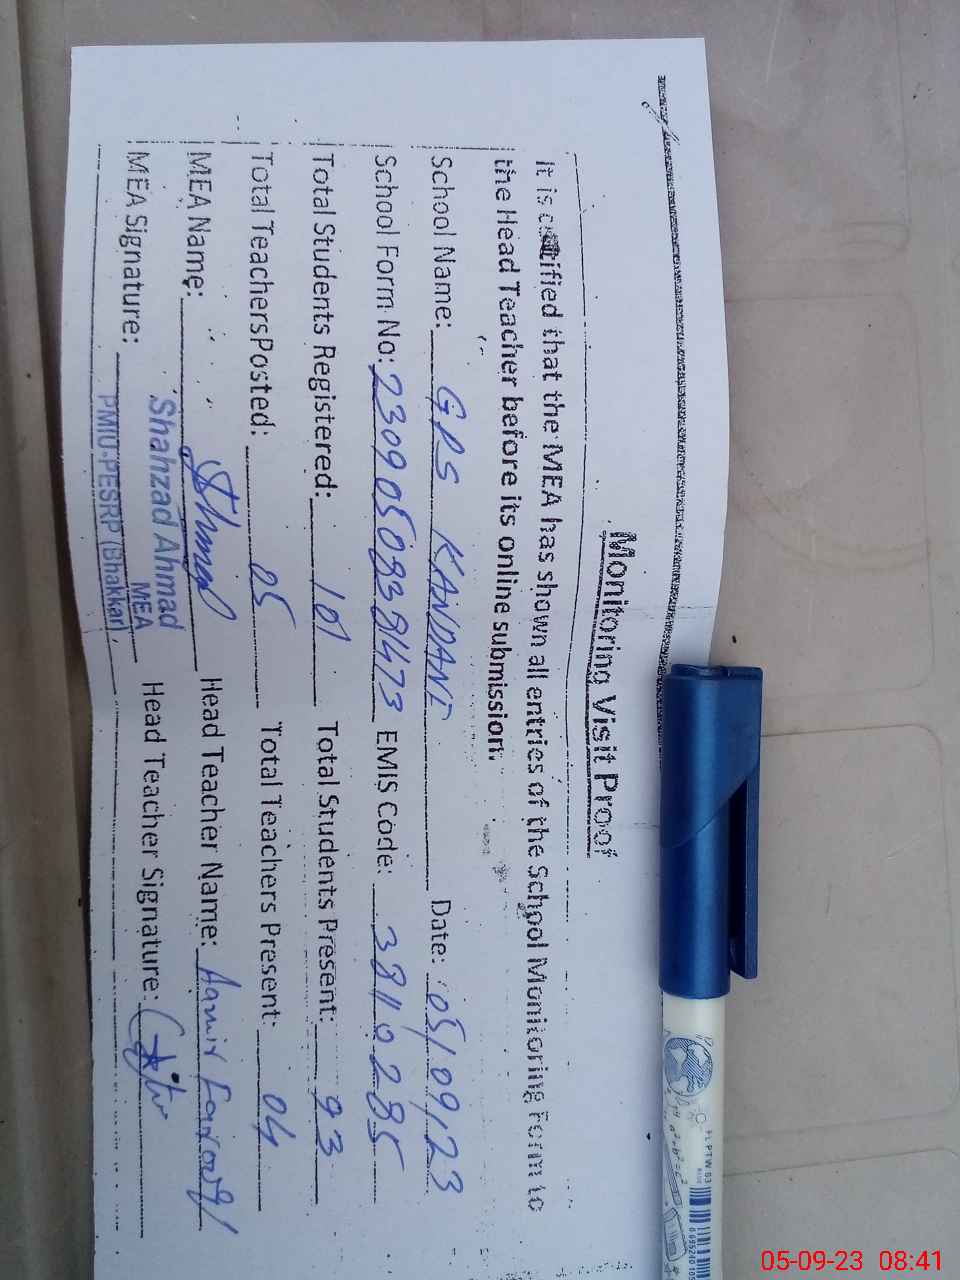 Monitoring Visit Proof
It is certified that the MEA has shown all entries of the School Monitoring Form to
the Head Teacher before its online submission.
School Name: GPS KANDANI Date: 05/09/23
School Form No: 2309050838473 EMIS Code: 38110285
Total Students Registered: 101 Total Students Present: 93
Total Teachers Posted: 05 Total Teachers Present: 04
MEA Name: Head Teacher Name: Aamir Farooq
MEA Signature: Shahzad Ahmad Head Teacher Signature:
MEA
PMIU-PESRP (Bhakkar)
FLPTW03
BLUE
a²+b²=c²
05-09-23 08:41